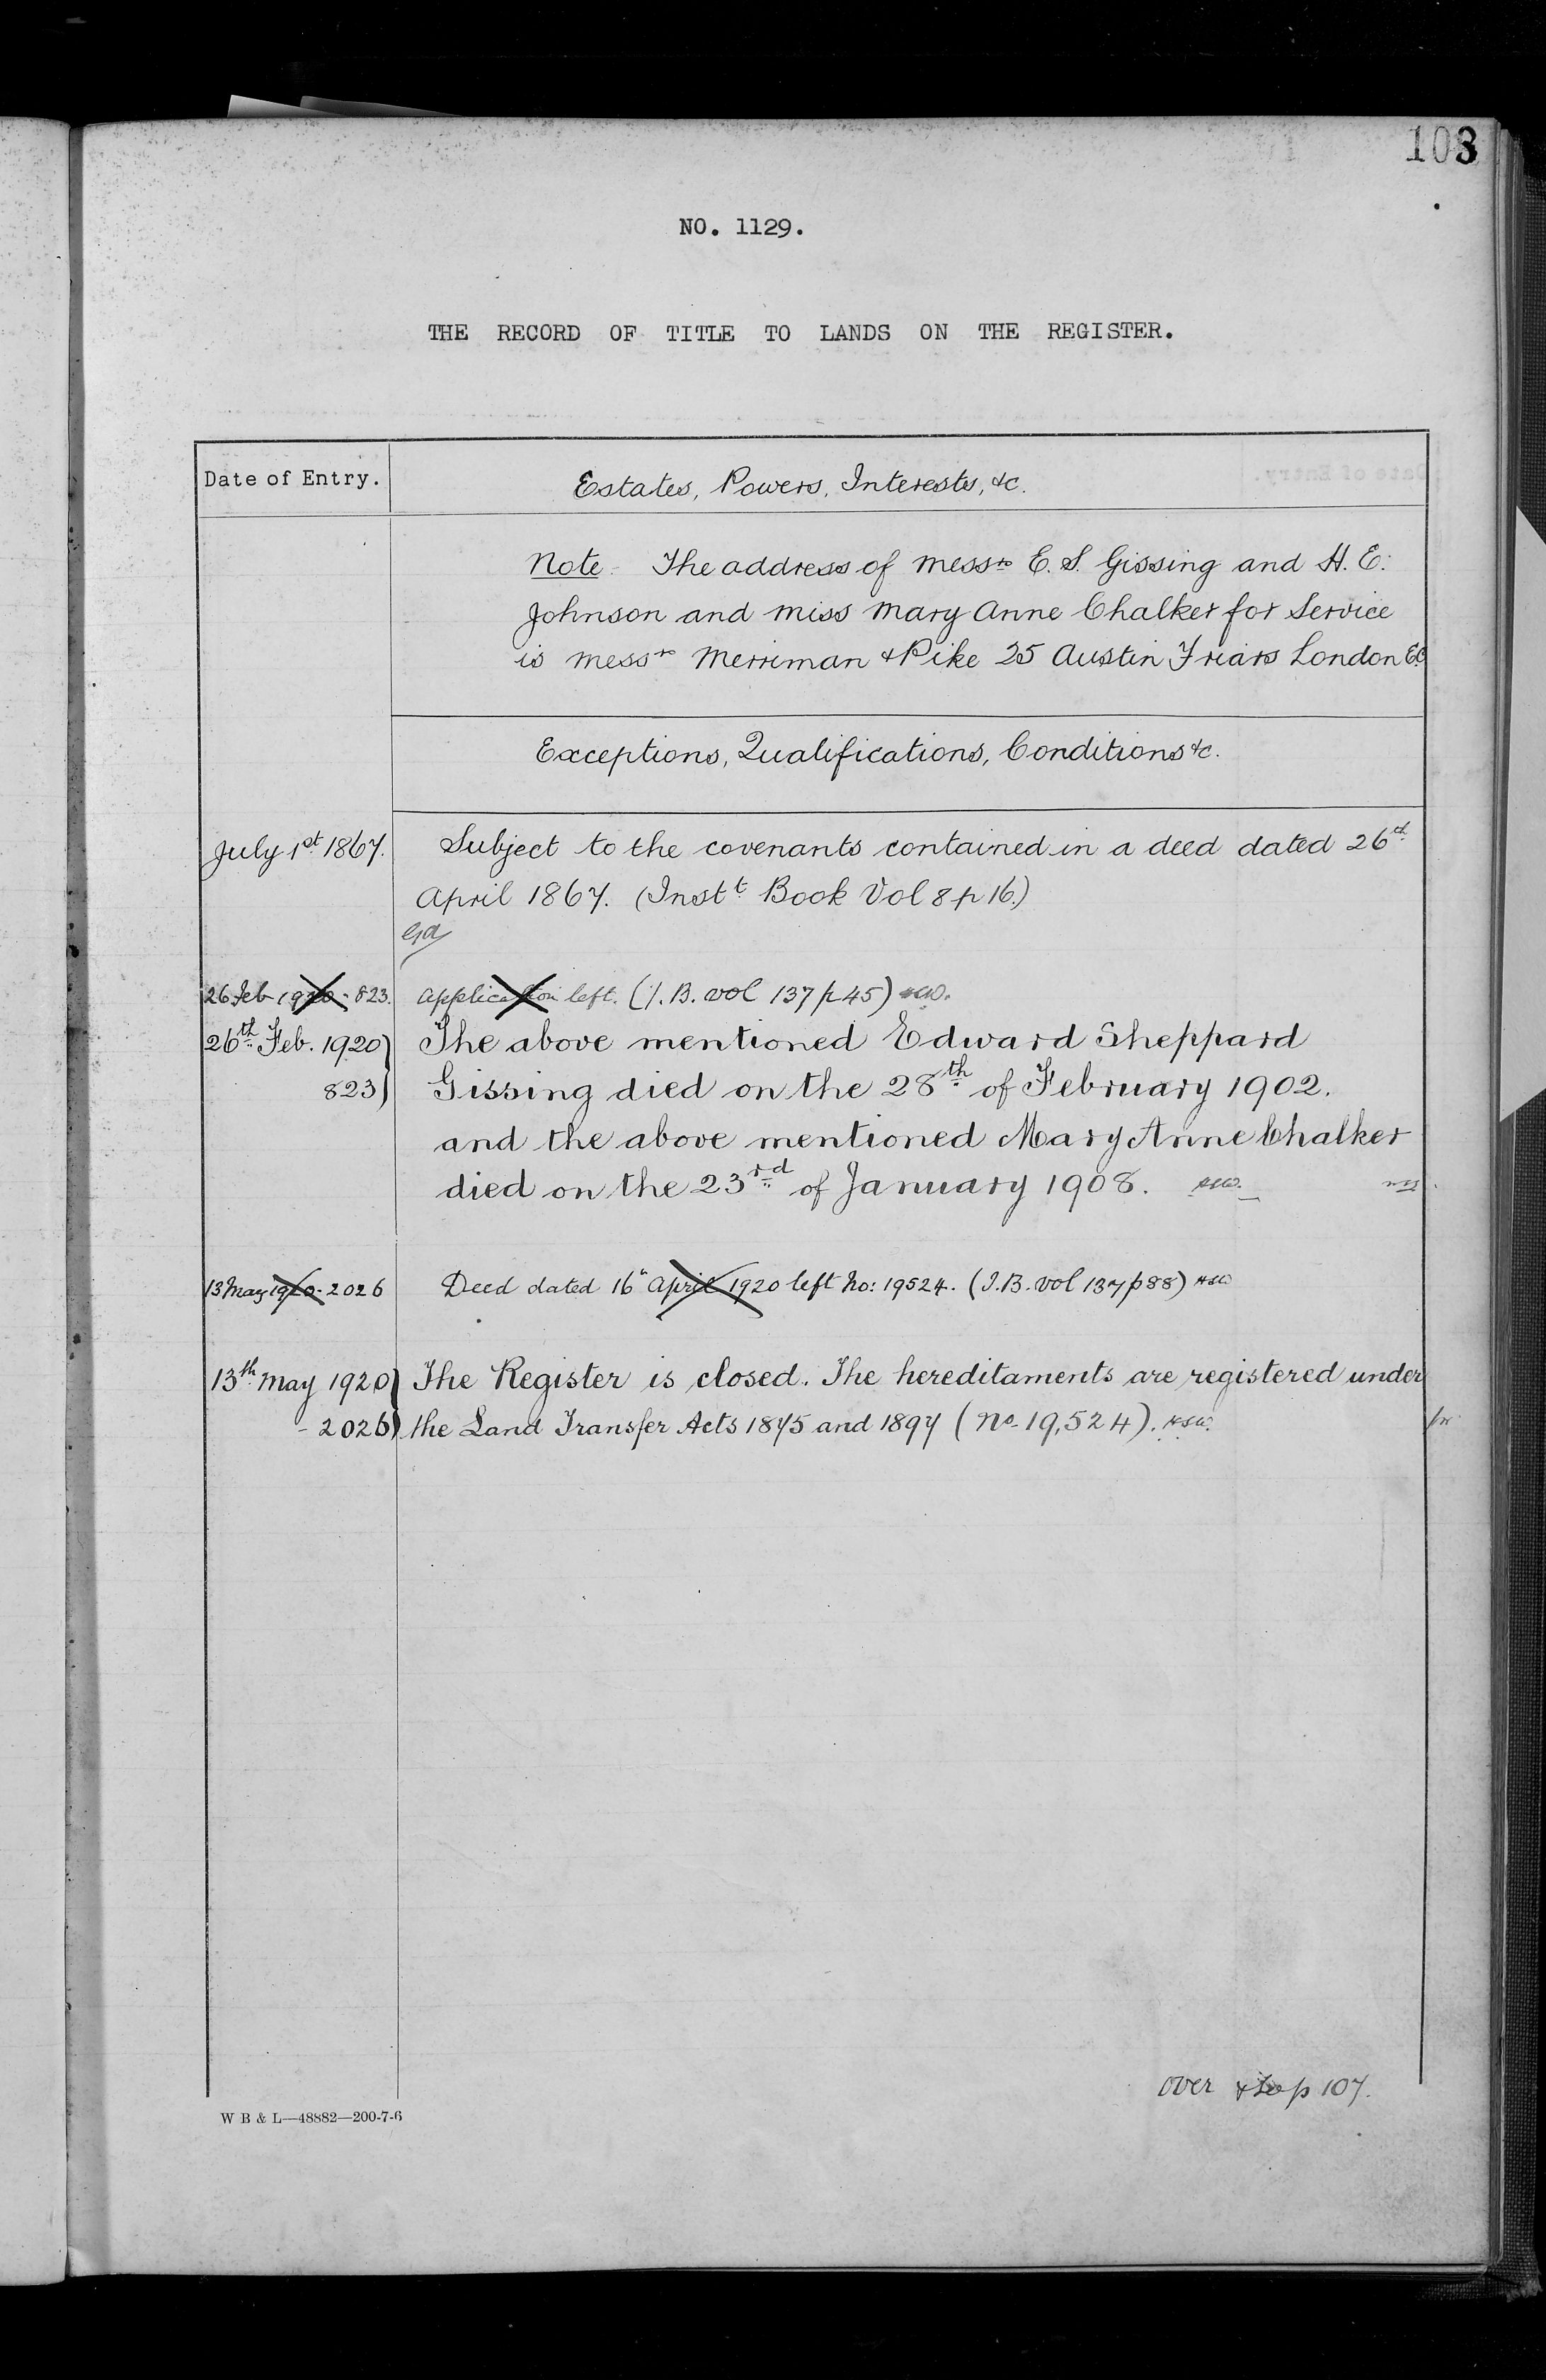 103
NO. 1129.
THE RECORD OF TITLE TO LANDS ON THE REGISTER.
Date of Entry.
Estates, Powers, Interests, &c.
Note. The address of Mess.rs E. S. Gissing and H. E.
Johnson and Miss Mary Anne Chalker for Service
is Mess.rs Merriman & Pike 25 Austin Friars London E.C
Exceptions, Qualifications, Conditions &c.
July 1st 1867. Subject to the covenants contained in a deed dated 26th
April 1867. (Inst.t Book Vol 8 p 16.)
26 Feb 1920 - 823. Application left. (I.B. vol 137 p 45)
26th Feb. 1920) The above mentioned Edward Sheppard
823) Gissing died on the 28th of February 1902.
and the above mentioned Mary Anne Chalker
died on the 23rd of January 1908.
13 May 1920 - 2026 Deed dated 16th April 1920 left No: 19524. (I.B. vol 137 p 88)
13th May 1920) The Register is closed. The hereditaments are registered under
- 2026) the Land Transfer Acts 1875 and 1897 (No 19,524).
over & to p 107.
W B & L—48882—200-7-6